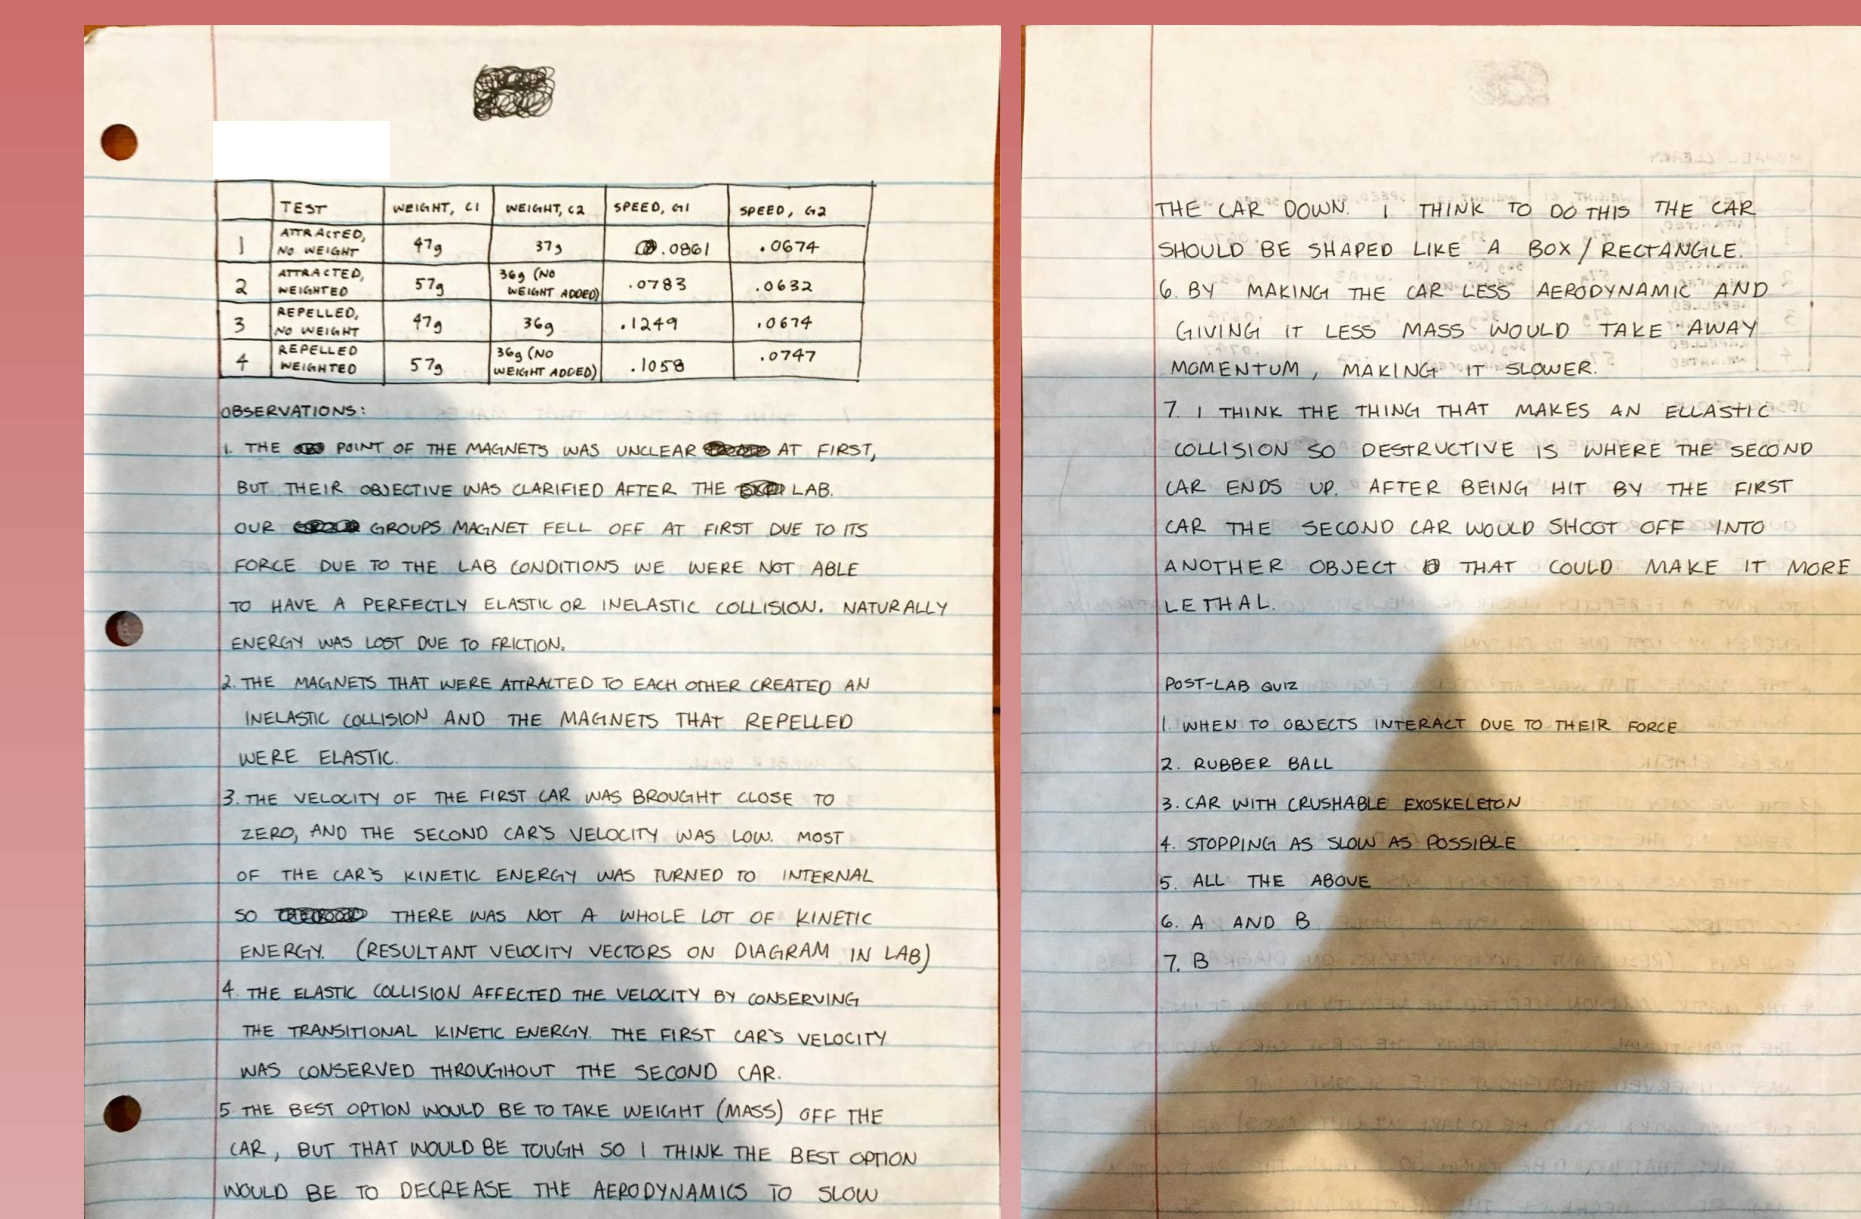 TEST WEIGHT, C1 WEIGHT, C2 SPEED, G1 SPEED, G2
1 ATTRACTED, NO WEIGHT 47g 37g .0861 .0674
2 ATTRACTED, WEIGHTED 57g 36g (NO WEIGHT ADDED) .0783 .0632
3 REPELLED, NO WEIGHT 47g 36g .1249 .0674
4 REPELLED WEIGHTED 57g 36g (NO WEIGHT ADDED) .1058 .0747
OBSERVATIONS:
1. THE POINT OF THE MAGNETS WAS UNCLEAR AT FIRST,
BUT THEIR OBJECTIVE WAS CLARIFIED AFTER THE LAB.
OUR GROUPS MAGNET FELL OFF AT FIRST DUE TO ITS
FORCE. DUE TO THE LAB CONDITIONS WE WERE NOT ABLE
TO HAVE A PERFECTLY ELASTIC OR INELASTIC COLLISION. NATURALLY
ENERGY WAS LOST DUE TO FRICTION.
2. THE MAGNETS THAT WERE ATTRACTED TO EACH OTHER CREATED AN
INELASTIC COLLISION AND THE MAGNETS THAT REPELLED
WERE ELASTIC.
3. THE VELOCITY OF THE FIRST CAR WAS BROUGHT CLOSE TO
ZERO, AND THE SECOND CAR'S VELOCITY WAS LOW. MOST
OF THE CAR'S KINETIC ENERGY WAS TURNED TO INTERNAL
SO THERE WAS NOT A WHOLE LOT OF KINETIC
ENERGY. (RESULTANT VELOCITY VECTORS ON DIAGRAM IN LAB)
4. THE ELASTIC COLLISION AFFECTED THE VELOCITY BY CONSERVING
THE TRANSITIONAL KINETIC ENERGY. THE FIRST CAR'S VELOCITY
WAS CONSERVED THROUGHOUT THE SECOND CAR.
5 THE BEST OPTION WOULD BE TO TAKE WEIGHT (MASS) OFF THE
CAR, BUT THAT WOULD BE TOUGH SO I THINK THE BEST OPTION
WOULD BE TO DECREASE THE AERODYNAMICS TO SLOW
THE CAR DOWN. I THINK TO DO THIS THE CAR
SHOULD BE SHAPED LIKE A BOX/RECTANGLE.
6. BY MAKING THE CAR LESS AERODYNAMIC AND
GIVING IT LESS MASS WOULD TAKE AWAY
MOMENTUM, MAKING IT SLOWER.
7. I THINK THE THING THAT MAKES AN ELLASTIC
COLLISION SO DESTRUCTIVE IS WHERE THE SECOND
CAR ENDS UP. AFTER BEING HIT BY THE FIRST
CAR THE SECOND CAR WOULD SHOOT OFF INTO
ANOTHER OBJECT THAT COULD MAKE IT MORE
LETHAL.
POST-LAB QUIZ
1. WHEN TO OBJECTS INTERACT DUE TO THEIR FORCE
2. RUBBER BALL
3. CAR WITH CRUSHABLE EXOSKELETON
4. STOPPING AS SLOW AS POSSIBLE
5. ALL THE ABOVE
6. A AND B
7. B